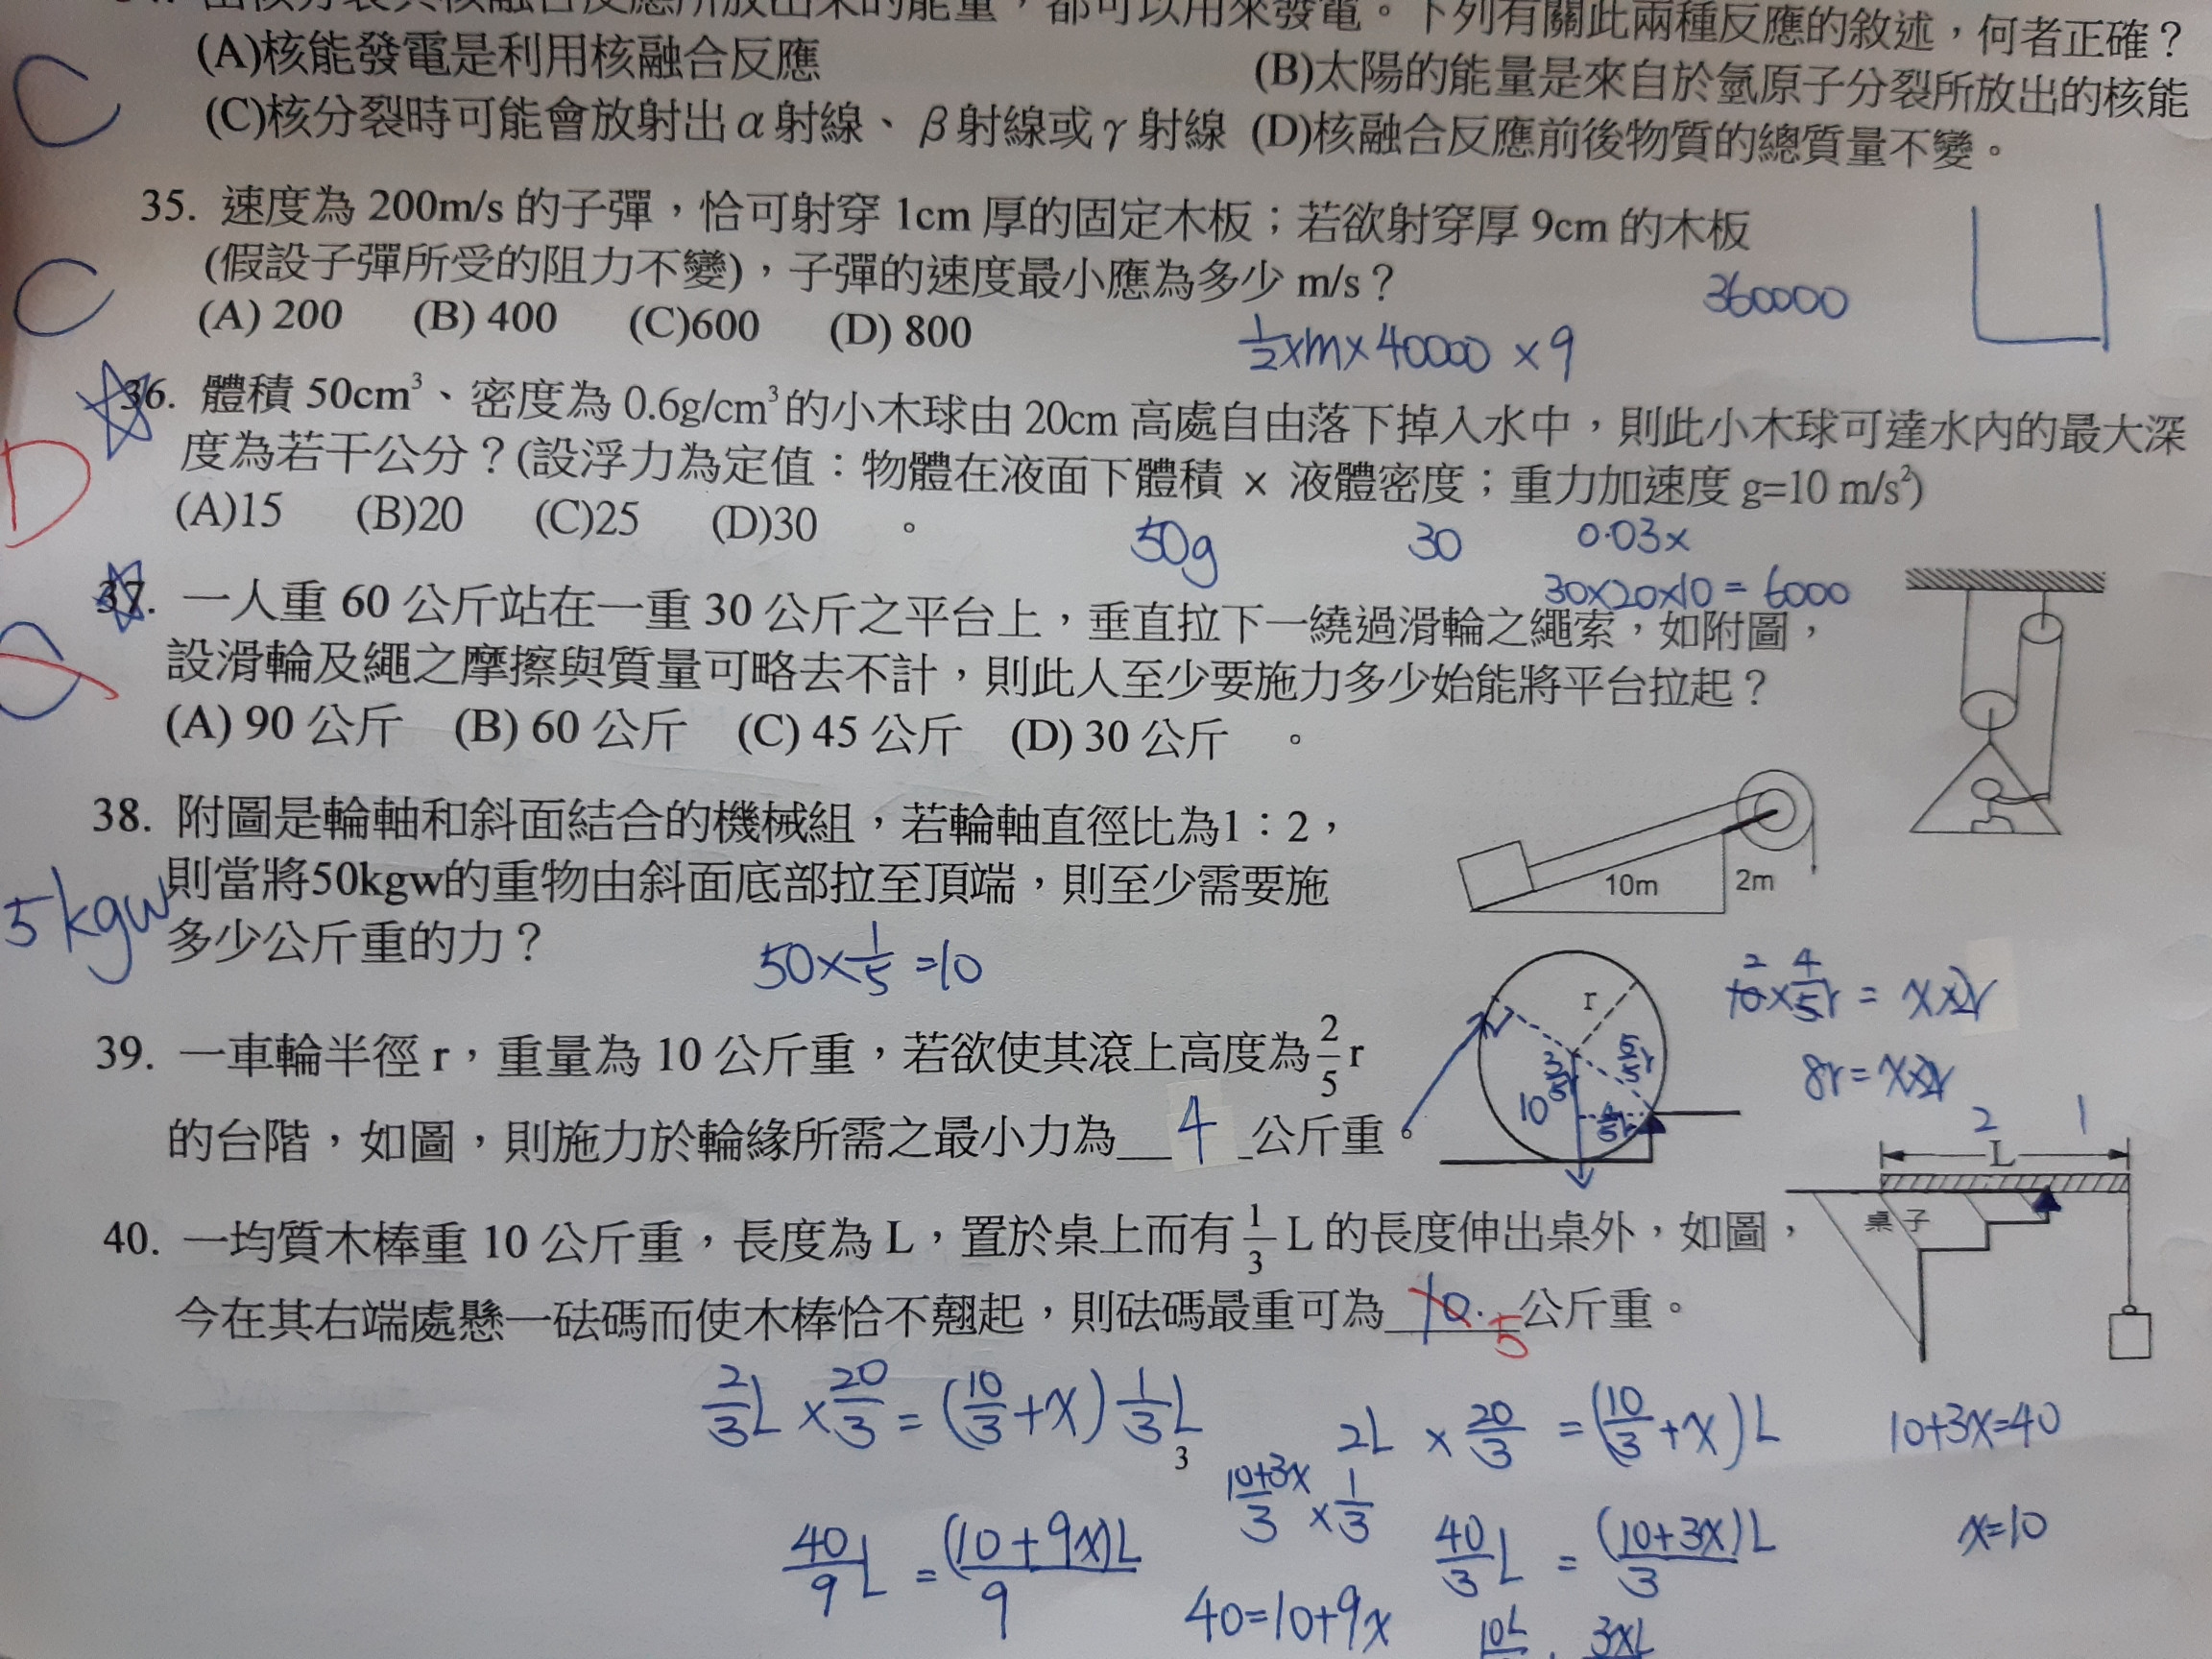 出核分裂與核融合反應所放出來的能量，都可以用來發電。下列有關此兩種反應的敘述，何者正確？
(A)核能發電是利用核融合反應 (B)太陽的能量是來自於氫原子分裂所放出的核能
C
(C)核分裂時可能會放射出α射線、β射線或γ射線 (D)核融合反應前後物質的總質量不變。
35. 速度為 200m/s 的子彈，恰可射穿 1cm 厚的固定木板；若欲射穿厚 9cm 的木板
C
(假設子彈所受的阻力不變)，子彈的速度最小應為多少 m/s？
360000
(A) 200 (B) 400 (C)600 (D) 800
1/2×m×40000 ×9
36. 體積 50cm³、密度為 0.6g/cm³的小木球由 20cm 高處自由落下掉入水中，則此小木球可達水內的最大深
D
度為若干公分？(設浮力為定值：物體在液面下體積 × 液體密度；重力加速度 g=10 m/s²)
(A)15 (B)20 (C)25 (D)30 。
50g 30 0.03x
30×20×10 = 6000
37. 一人重 60 公斤站在一重 30 公斤之平台上，垂直拉下一繞過滑輪之繩索，如附圖，
設滑輪及繩之摩擦與質量可略去不計，則此人至少要施力多少始能將平台拉起？
(A) 90 公斤 (B) 60 公斤 (C) 45 公斤 (D) 30 公斤 。
38. 附圖是輪軸和斜面結合的機械組，若輪軸直徑比為1：2，
則當將50kgw的重物由斜面底部拉至頂端，則至少需要施
多少公斤重的力？
5kgw
50×1/5=10
10m
2m
39. 一車輪半徑 r，重量為 10 公斤重，若欲使其滾上高度為2/5 r
的台階，如圖，則施力於輪緣所需之最小力為 4 公斤重。
r
3/5r
5/5r
10
4/5r
2
10×4/5r = x×2r
8r=x×2r
2 1
L
桌子
40. 一均質木棒重 10 公斤重，長度為 L，置於桌上而有1/3 L 的長度伸出桌外，如圖，
今在其右端處懸一砝碼而使木棒恰不翹起，則砝碼最重可為 10. 5 公斤重。
2/3L ×20/3=(10/3+x)1/3L
3
2L × 20/3 =(10/3+x)L
10+3x=40
10+3x/3 ×1/3
40/9L =(10+9x)L/9
40/3L = (10+3x)L/3
x=10
40=10+9x